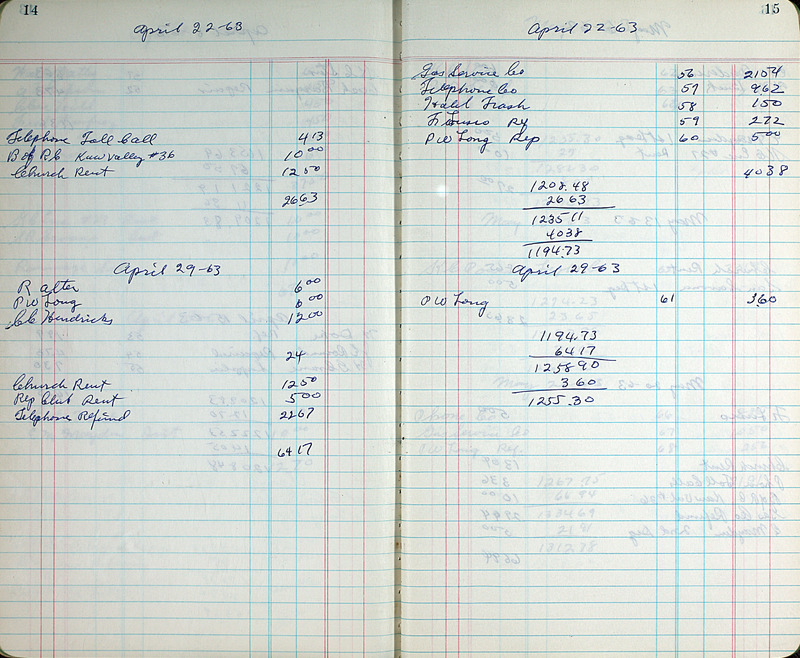 14
April 22-63
Telephone Toll Call 4 13
B of Rb Kaw Valley #36 10 00
Church Rent 12 50
26 63
April 29-63
R 6 00
PW Long 6 00
Hendricks 12 00
24
Church Rent 12 50
Rep Club Rent 5 00
Telephone Refund 22 67
64 17
15
April 22-63
Gas Service Co 56 21 54
Telephone Co 57 9 62
Trash 58 1 50
Ry 59 2 72
PW Long Rep 60 5 00
40 38
1208.48
26 63
1235 11
40 38
1194.73
April 29-63
PW Long 61 3 60
1194.73
64 17
1258 90
3 60
1255.30